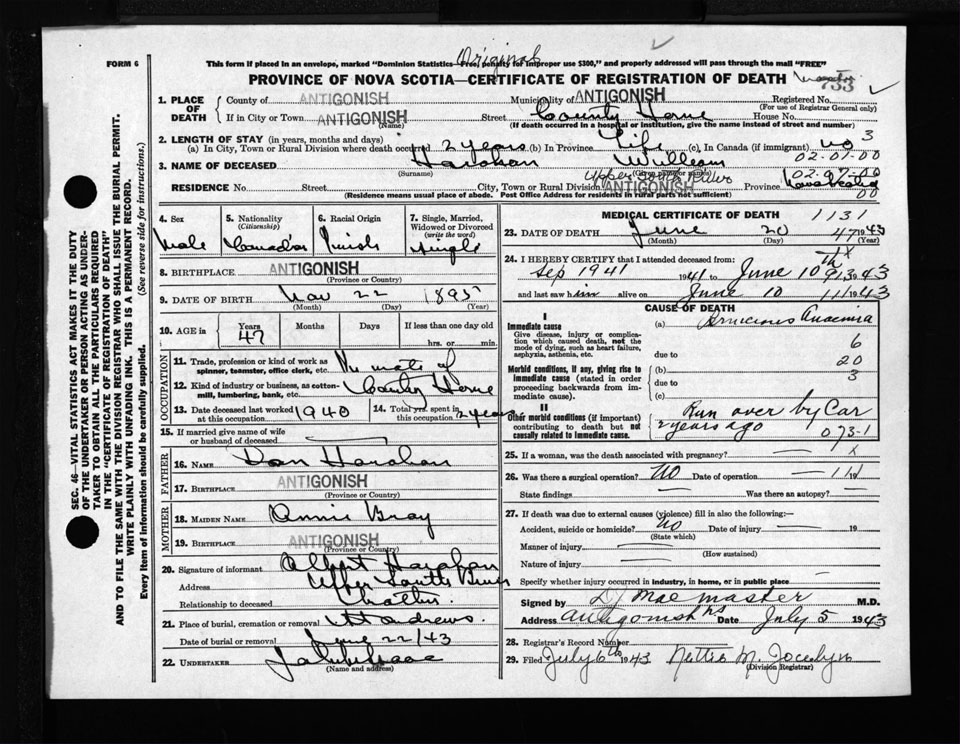 Original
FORM 6 This form if placed in an envelope, marked "Dominion Statistics—Free, penalty for improper use $300," and properly addressed will pass through the mail "FREE"
PROVINCE OF NOVA SCOTIA—CERTIFICATE OF REGISTRATION OF DEATH
733
1. PLACE OF DEATH
County of ANTIGONISH Municipality of ANTIGONISH Registered No.
(For use of Registrar General only)
If in City or Town ANTIGONISH Street County Home House No.
(Name) (If death occurred in a hospital or institution, give the name instead of street and number)
2. LENGTH OF STAY (in years, months and days)
(a) In City, Town or Rural Division where death occurred 2 years (b) In Province Life (c) In Canada (if immigrant) no 3
02-01-00
3. NAME OF DECEASED Harahan William
(Surname)
RESIDENCE No. Street City, Town or Rural Division Upper South River ANTIGONISH Province Nova Scotia
00
(Residence means usual place of abode. Post Office Address for residents in rural parts not sufficient)
SEC. 46—VITAL STATISTICS ACT MAKES IT THE DUTY
OF THE UNDERTAKER OR PERSON ACTING AS UNDER-
TAKER TO OBTAIN ALL THE PARTICULARS REQUIRED
IN THE "CERTIFICATE OF REGISTRATION OF DEATH"
AND TO FILE THE SAME WITH THE DIVISION REGISTRAR WHO SHALL ISSUE THE BURIAL PERMIT.
WRITE PLAINLY WITH UNFADING INK. THIS IS A PERMANENT RECORD.
Every item of information should be carefully supplied. (See reverse side for instructions.)
4. Sex
Male
5. Nationality
(Citizenship)
6. Racial Origin
7. Single, Married,
Widowed or Divorced
(write the word)
Single
8. BIRTHPLACE ANTIGONISH
(Province or Country)
9. DATE OF BIRTH Nov 22 1895
(Month) (Day) (Year)
10. AGE in Years Months Days If less than one day old
47 hrs. or min.
OCCUPATION
11. Trade, profession or kind of work as
spinner, teamster, office clerk, etc. of
12. Kind of industry or business, as cotton-
mill, lumbering, bank, etc. County Home
13. Date deceased last worked
at this occupation 1940
14. Total yrs. spent in
this occupation 2 years
15. If married give name of wife
or husband of deceased
FATHER
16. NAME Dan Harahan
17. BIRTHPLACE ANTIGONISH
(Province or Country)
MOTHER
18. MAIDEN NAME Annie Bray
19. BIRTHPLACE ANTIGONISH
(Province or Country)
20. Signature of informant Albert Harahan
Address Upper South River
Relationship to deceased Brother.
21. Place of burial, cremation or removal St Andrews.
Date of burial or removal June 22/43
22. UNDERTAKER
(Name and address)
MEDICAL CERTIFICATE OF DEATH 1131
23. DATE OF DEATH June 20 47 1943
(Month) (Day) (Year)
24. I HEREBY CERTIFY that I attended deceased from:
Sep 1941 1941 to June 10th 913 1943
and last saw him alive on June 10 11 1943
CAUSE OF DEATH
I
Immediate cause
Give disease, injury or complica-
tion which caused death, not the
mode of dying, such as heart failure,
asphyxia, asthenia, etc.
(a) Pernicious Anaemia
due to 6
Morbid conditions, if any, giving rise to
immediate cause (stated in order
proceeding backwards from im-
mediate cause).
(b) 20
due to 3
(c)
II
Other morbid conditions (if important)
contributing to death but not
causally related to immediate cause.
Run over by Car
2 years ago 073-1
25. If a woman, was the death associated with pregnancy? X
26. Was there a surgical operation? No Date of operation 19
State findings Was there an autopsy?
27. If death was due to external causes (violence) fill in also the following:—
Accident, suicide or homicide? No Date of injury 19
(State which)
Manner of injury
(How sustained)
Nature of injury
Specify whether injury occurred in industry, in home, or in public place
Signed by MacMaster M.D.
Address Antigonish NS Date July 5 1943
28. Registrar's Record Number
29. Filed July 6th 1943 Nettie M. Jocelyn
(Division Registrar)